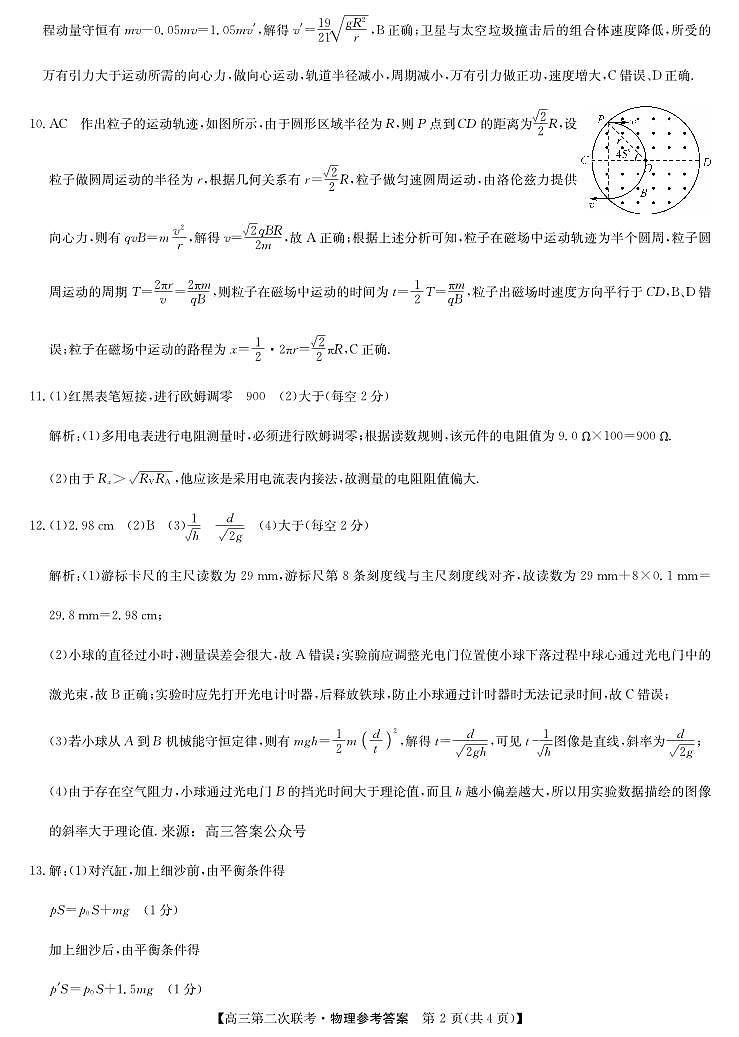 程动量守恒有 mv－0.05mv=1.05mv′,解得 v′=19/21√(gR²/r),B正确;卫星与太空垃圾撞击后的组合体速度降低,所受的
万有引力大于运动所需的向心力,做向心运动,轨道半径减小,周期减小,万有引力做正功,速度增大,C错误、D正确.
10. AC 作出粒子的运动轨迹,如图所示,由于圆形区域半径为R,则P点到CD的距离为√2/2 R,设
粒子做圆周运动的半径为r,根据几何关系有r=√2/2 R,粒子做匀速圆周运动,由洛伦兹力提供
向心力,则有 qvB=m v²/r,解得 v=√2qBR/2m,故A正确;根据上述分析可知,粒子在磁场中运动轨迹为半个圆周,粒子圆
周运动的周期 T=2πr/v=2πm/qB,则粒子在磁场中运动的时间为 t=1/2 T=πm/qB,粒子出磁场时速度方向平行于CD,B、D错
误;粒子在磁场中运动的路程为 x=1/2·2πr=√2/2 πR,C正确.
P
v
r
C
45°
O
D
B
v
11. (1)红黑表笔短接,进行欧姆调零 900 (2)大于(每空2分)
解析:(1)多用电表进行电阻测量时,必须进行欧姆调零;根据读数规则,该元件的电阻值为9.0 Ω×100=900 Ω.
(2)由于 Rₓ>√(R_V R_A),他应该是采用电流表内接法,故测量的电阻阻值偏大.
12. (1)2.98 cm (2)B (3)1/√h d/√2g (4)大于(每空2分)
解析:(1)游标卡尺的主尺读数为29 mm,游标尺第8条刻度线与主尺刻度线对齐,故读数为29 mm+8×0.1 mm=
29.8 mm=2.98 cm;
(2)小球的直径过小时,测量误差会很大,故A错误;实验前应调整光电门位置使小球下落过程中球心通过光电门中的
激光束,故B正确;实验时应先打开光电计时器,后释放铁球,防止小球通过计时器时无法记录时间,故C错误;
(3)若小球从A到B机械能守恒定律,则有 mgh=1/2 m(d/t)²,解得 t=d/√2gh,可见 t-1/√h图像是直线,斜率为d/√2g;
(4)由于存在空气阻力,小球通过光电门B的挡光时间大于理论值,而且h越小偏差越大,所以用实验数据描绘的图像
的斜率大于理论值. 来源：高三答案公众号
13. 解:(1)对汽缸,加上细沙前,由平衡条件得
pS=p₀S+mg (1分)
加上细沙后,由平衡条件得
p′S=p₀S+1.5mg (1分)
【高三第二次联考·物理参考答案 第2页(共4页)】